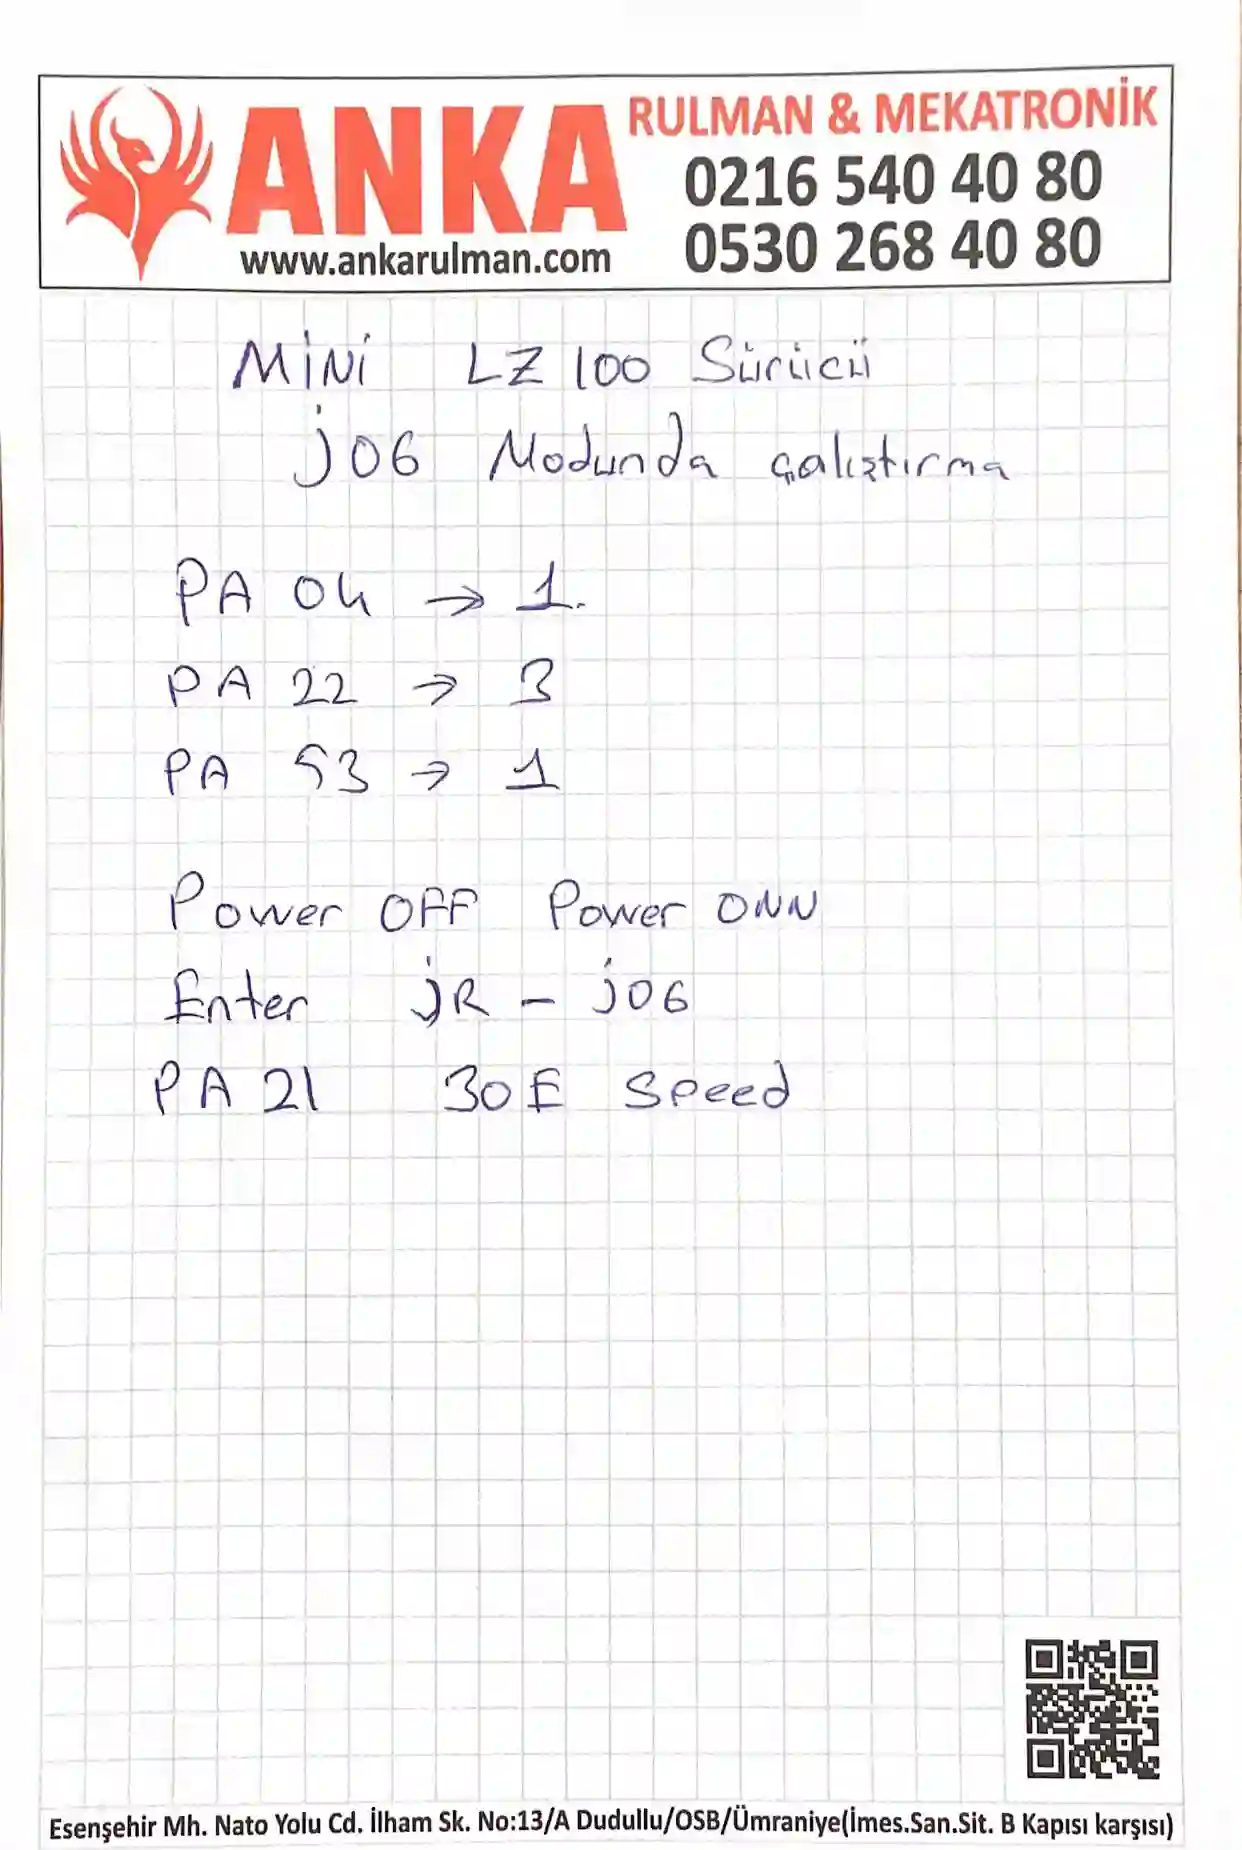 ANKA
RULMAN & MEKATRONİK
0216 540 40 80
0530 268 40 80
www.ankarulman.com
MİNİ LZ 100 Sürücü
jOG Modunda çalıştırma
PA 04 → 1.
PA 22 → 3
PA 53 → 1
Power OFF Power ONN
Enter jR - jOG
PA 21 30E Speed
Esenşehir Mh. Nato Yolu Cd. İlham Sk. No:13/A Dudullu/OSB/Ümraniye(İmes.San.Sit. B Kapısı karşısı)